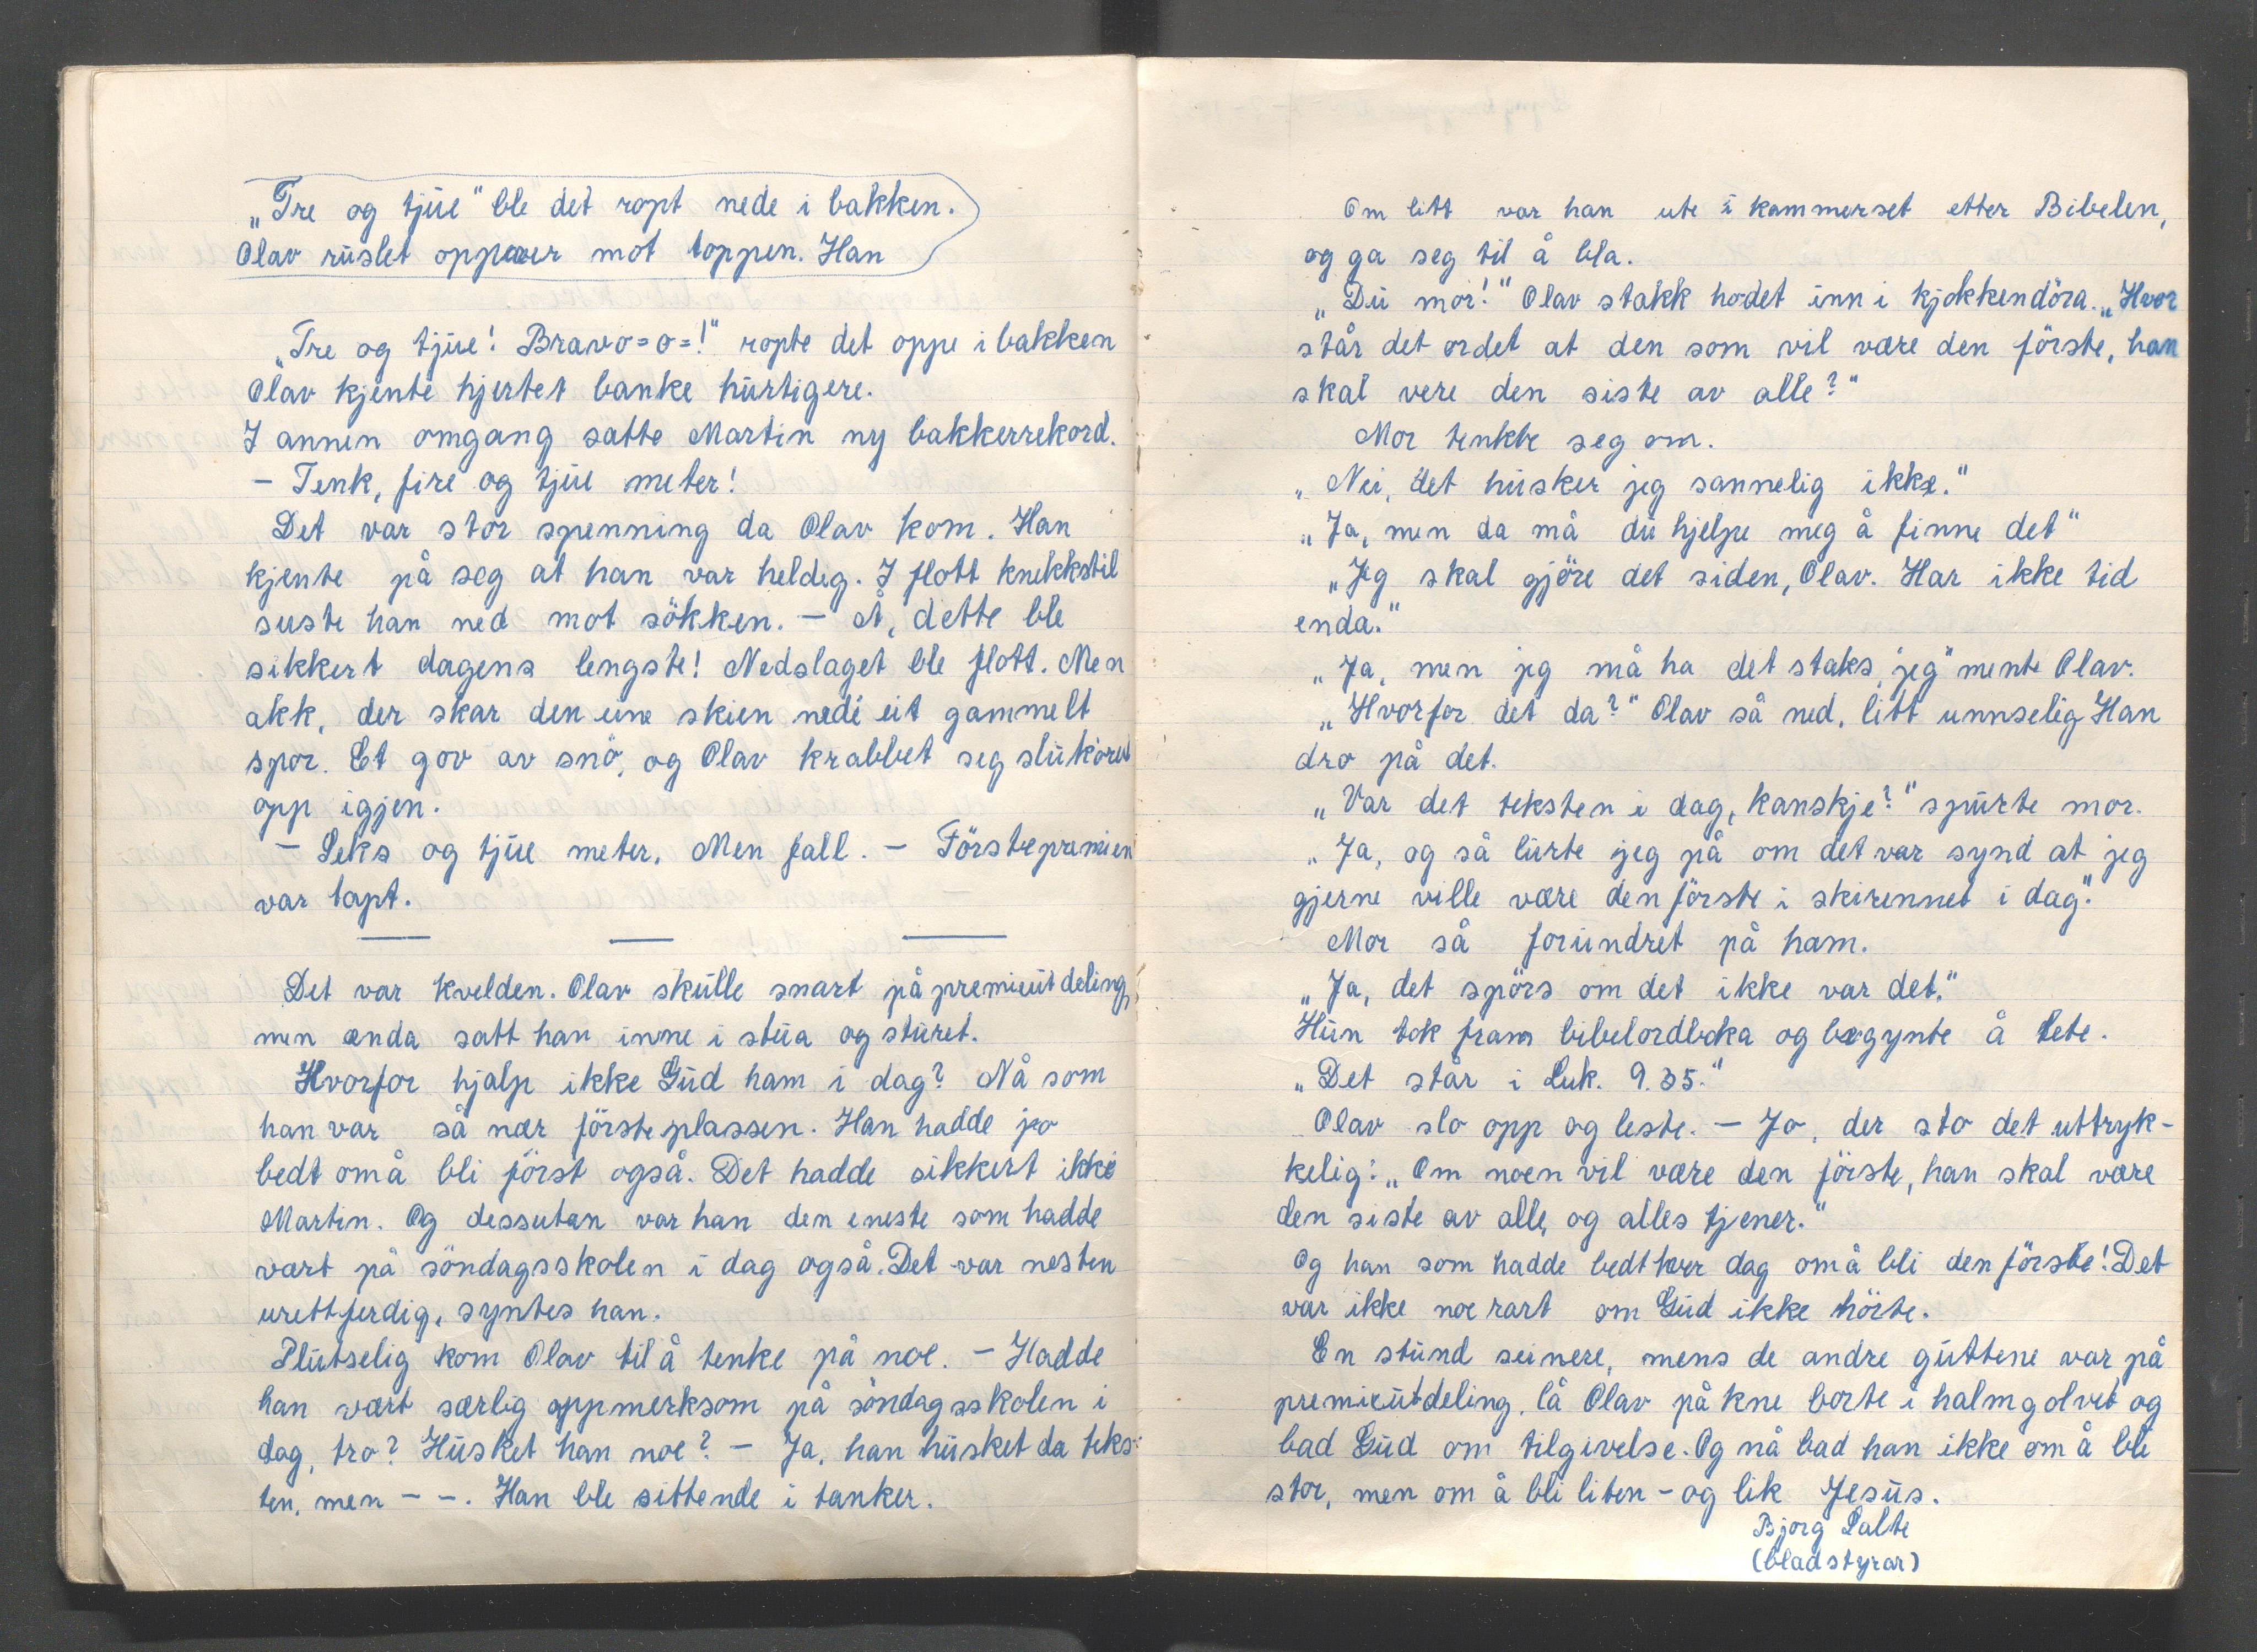 „Tre og tjue" ble det ropt nede i bakken.
Olav ruslet oppover mot toppen. Han
„Tre og tjue! Bravo=o=!" ropte det oppe i bakken
Olav kjente hjertet banke hurtigere.
I annen omgang satte Martin ny bakkerrekord.
- Tenk, fire og tjue meter!
Det var stor spenning da Olav kom. Han
kjente på seg at han var heldig. I flott knekkstil
suste han ned mot sökken. - Å, dette ble
sikkert dagens lengste! Nedslaget ble flott. Men
akk, der skar den eine skien nedi eit gammelt
spor. Et gov av snö, og Olav krabbet seg sluköret
opp igjen.
- Seks og tjue meter. Men fall. - Förstepremien
var tapt.
Det var kvelden. Olav skulle snart på premieutdeling,
men enda satt han inne i stua og sturet.
Hvorfor hjalp ikke Gud ham i dag? Nå som
han var så nær försteplassen. Han hadde jo
bedt om å bli först også. Det hadde sikkert ikke
Martin. Og dessutan var han den eneste som hadde
vært på söndagsskolen i dag også. Det var nesten
urettferdig, syntes han.
Plutselig kom Olav til å tenke på noe. - Hadde
han vært særlig oppmerksom på söndagsskolen i
dag, tro? Husket han noe? - Ja, han husket da teks-
ten, men - -. Han ble sittende i tanker.
Om litt var han ute i kammerset etter Bibelen,
og ga seg til å bla.
„Du mor!" Olav stakk hodet inn i kjökkendöra. „Hvor
står det ordet at den som vil være den förste, han
skal vere den siste av alle?"
Mor tenkte seg om.
„Nei, det husker jeg sannelig ikke."
„Ja, men da må du hjelpe meg å finne det"
„Jeg skal gjöre det siden, Olav. Har ikke tid
enda."
„Ja, men jeg må ha det staks, jeg" mente Olav.
„Hvorfor det da?" Olav så ned, litt unnselig. Han
dro på det.
„Var det teksten i dag, kanskje?" spurte mor.
„Ja, og så lurte jeg på om det var synd at jeg
gjerne ville være den förste i skirennet i dag."
Mor så forundret på ham.
„Ja, det spörs om det ikke var det."
Hun tok fram bibelordboka og begynte å lete.
„Det står i Luk. 9.35."
Olav slo opp og leste. - Jo, der sto det uttryk-
kelig: „Om noen vil være den förste, han skal være
den siste av alle, og alles tjener."
Og han som hadde bedt hver dag om å bli den förste! Det
var ikke noe rart om Gud ikke hörte.
En stund seinere, mens de andre guttene var på
premieutdeling, lå Olav på kne borte i halmgolvet og
bad Gud om tilgivelse. Og nå bad han ikke om å bli
stor, men om å bli liten - og lik Jesus.
Bjørg Salte
(bladstyrar)